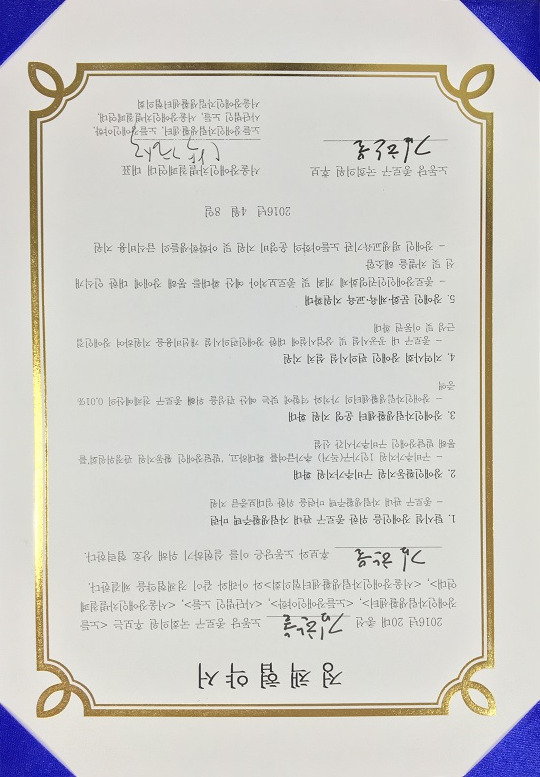 정 책 협 약 서
2016년 20대 총선 김한울 노동당 종로구 국회의원 후보는 <노들
장애인자립생활센터>, <노들장애인야학>, <사단법인 노들>, <서울장애인차별철폐
연대>, <서울장애인자립생활센터협의회>와 아래와 같이 정책협약을 체결한다.
김한울 후보와 노동당은 이를 실현하기 위해 상호 협력한다.
1. 탈시설 장애인을 위한 종로구 관내 자립생활주택 마련
- 종로구 관내 자립생활주택 마련을 위한 임대보증금 지원
2. 장애인활동지원 구비추가지원 확대
- 구비추가지원 1인가구(독거) 추가급여를 확대하고, '발달장애인 활동지원 판정위원회'를
통해 발달장애인 구비추가시간 신설
3. 장애인자립생활센터 운영 지원 확대
- 장애인자립생활센터의 가치와 역할에 맞는 예산 편성을 위해 종로구 전체예산의 0.01%
증액
4. 지역사회 장애인 편의시설 설치 지원
- 종로구 내 공공시설 및 상업시설에 대한 장애인편의시설 개선비용을 지원하여 장애인접
근성 및 이동권 확대
5. 장애인 문화·체육·교육 지원확대
- 종로장애인인권영화제 개최 및 종로보치아 예산 확대를 통해 장애에 대한 인식개
선 및 차별을 해소함
- 장애인 평생교육기관 노들야학의 운영비 지원 및 야학학생들의 급식비용 지원
2016년 4월 8일
노동당 종로구 국회의원 후보
김한울
서울장애인차별철폐연대 대표
노들장애인자립생활센터, 노들장애인야학,
사단법인 노들, 서울장애인차별철폐연대,
서울장애인자립생활센터협의회